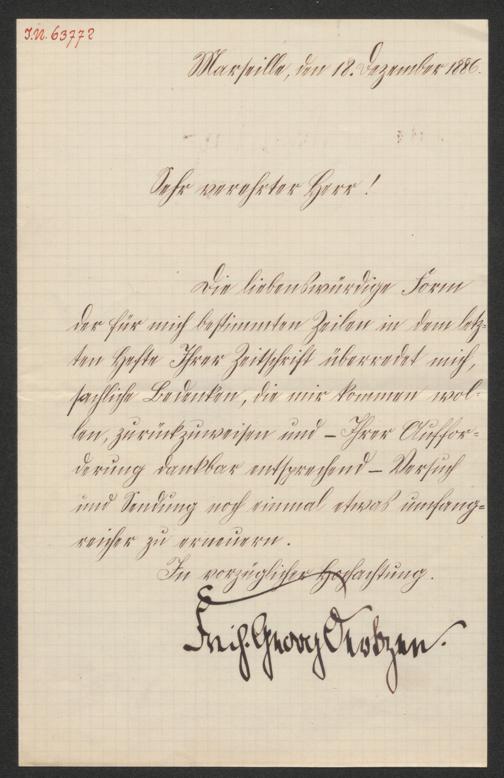 J.N. 63772
Marseille, den 18. Dezember 1886.
Sehr verehrter Herr!
Die liebenswürdige Form
der für mich bestimmten Zeilen in dem letz-
ten Hefte Ihrer Zeitschrift überredet mich,
sachliche Bedenken, die mir kommen wol-
len, zurückzuweisen und – Ihrer Auffor-
derung dankbar entsprechend – Versuch
und Sendung noch einmal etwas umfang-
reicher zu erneuern.
In vorzüglicher Hochachtung.
Freih. Georg Oertzen.